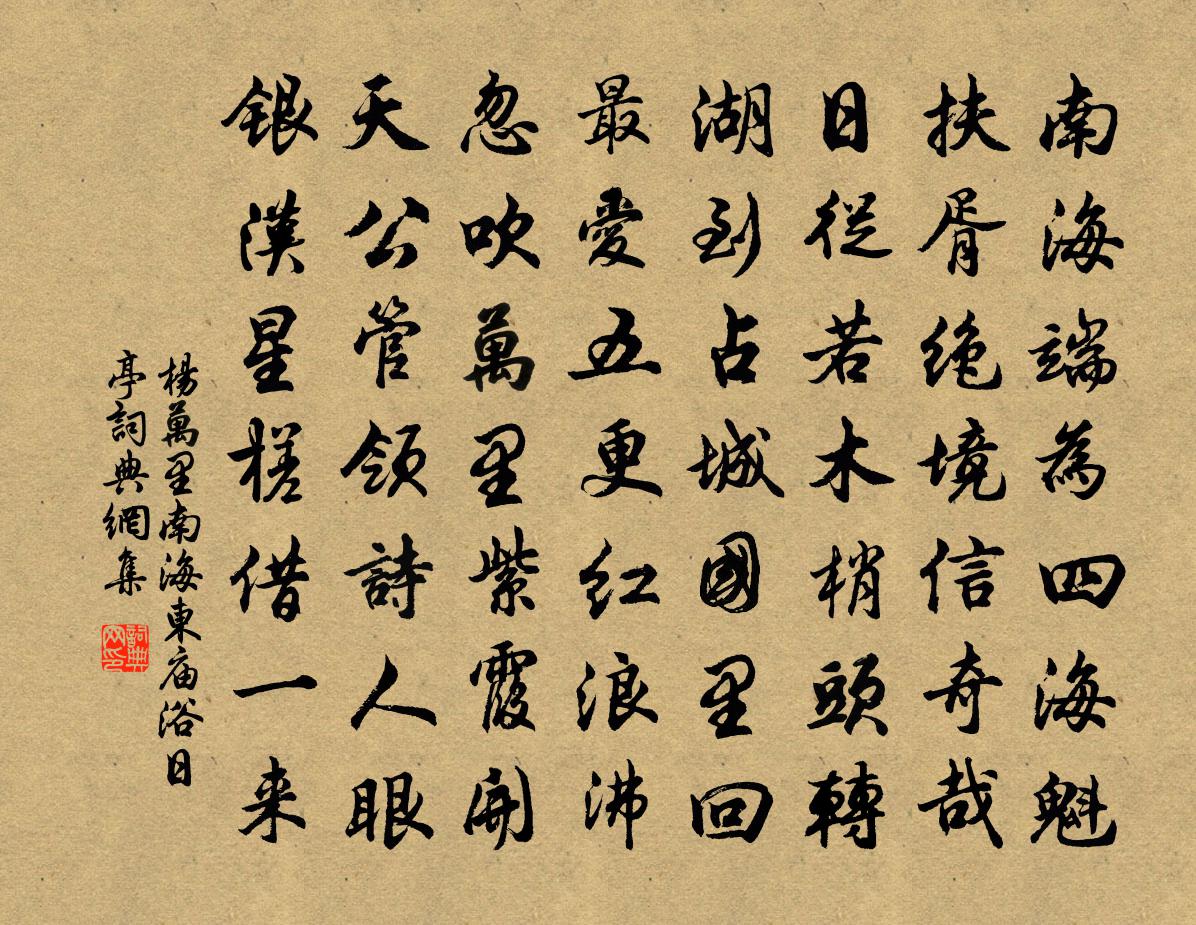 南海端為四海魁
扶胥絶境信奇哉
日從若木梢頭轉
湖到占城國里回
最愛五更红浪沸
忽吹萬里紫霞開
天公管領詩人眼
銀漢星槎借一来
楊萬里南海東庙浴日
亭詞典網集
詞典
网印